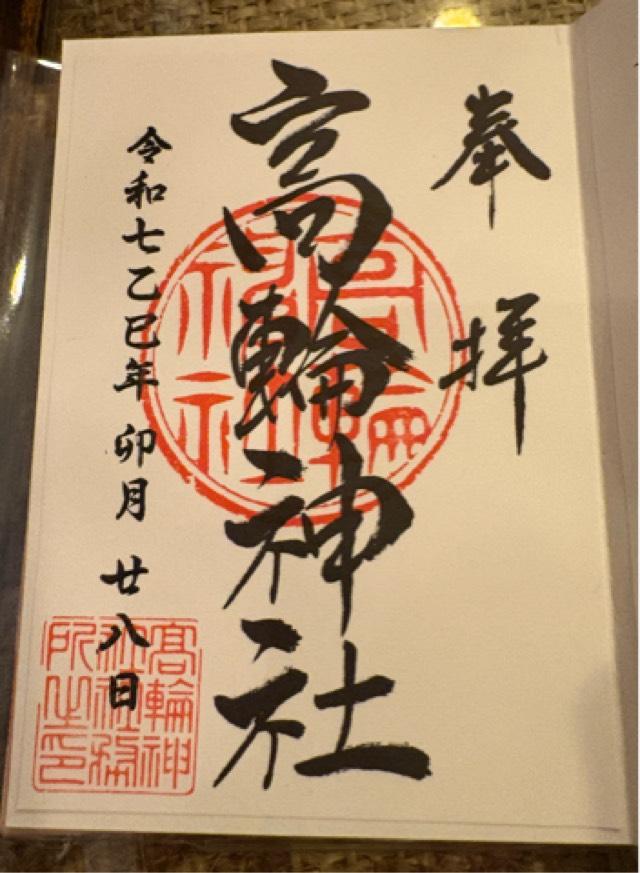 奉拝
高輪神社
令和七乙巳年 卯月 廿八日
高輪神社
高輪神社社務所之印